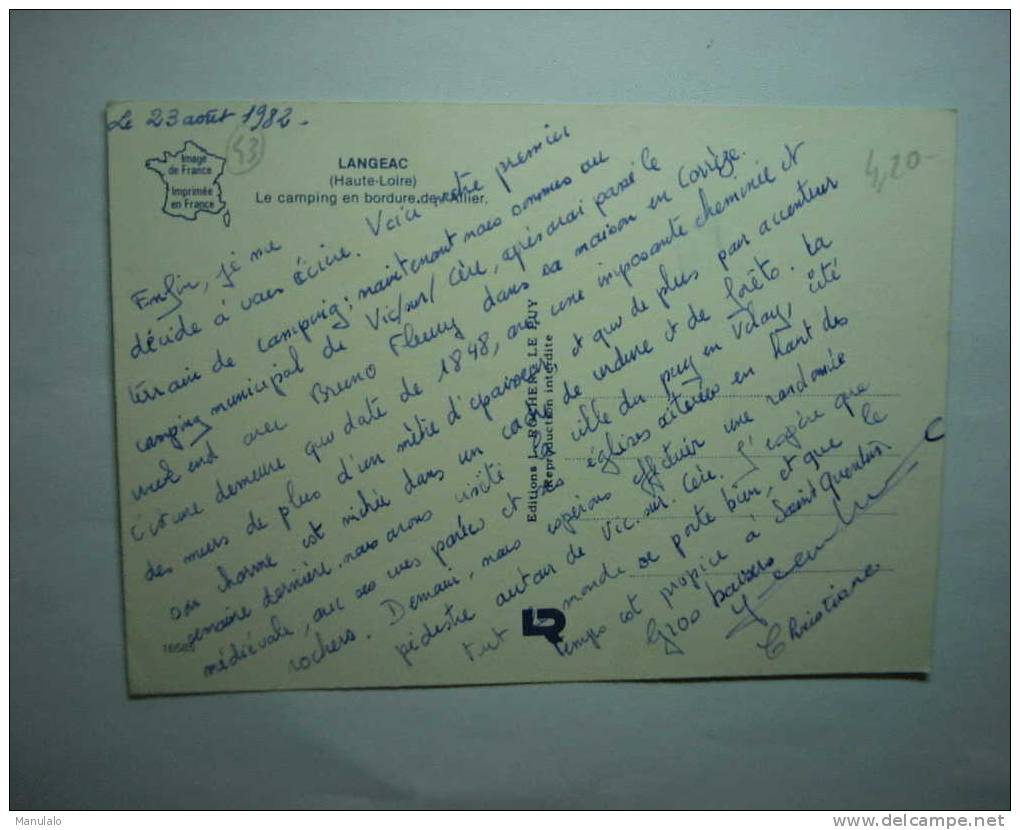 Le 23 août 1982.
43
4,20-
Image
de France
Imprimée
en France
LANGEAC
(Haute-Loire)
Le camping en bordure de l'Allier.
Enfin, je me
décide à vous écrire. Voici notre premier
terrain de camping; maintenant nous sommes au
camping municipal de Vic/sur/Cère, après avoir passé le
week end avec Bruno Fleury dans sa maison en Corrèze.
C'est une demeure qui date de 1848, avec une imposante cheminée et
des murs de plus d'un mètre d'épaisseur et qui de plus pour accentuer
son charme est nichée dans un cadre de verdure et de forêts. La
semaine dernière nous avons visité la ville du puy en Velay, cité
médiévale, avec ses rues pavées et ses églises situées en haut des
rochers. Demain, nous espérons effectuer une randonnée
pédestre autour de Vic.sur.Cère. J'espère que
tout le monde se porte bien, et que le
temps est propice à Saint Quentin.
Gros baisers
Christiane
Editions L. ROCHER, LE PUY
Reproduction interdite
LR
Manulalo
delcampe.net